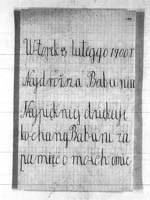 Wtorek 3 lutego 1900 r
Najdroższa Babuniu
Najpiękniej dziękuję
kochanej Babuni za
pamięć o moich imie